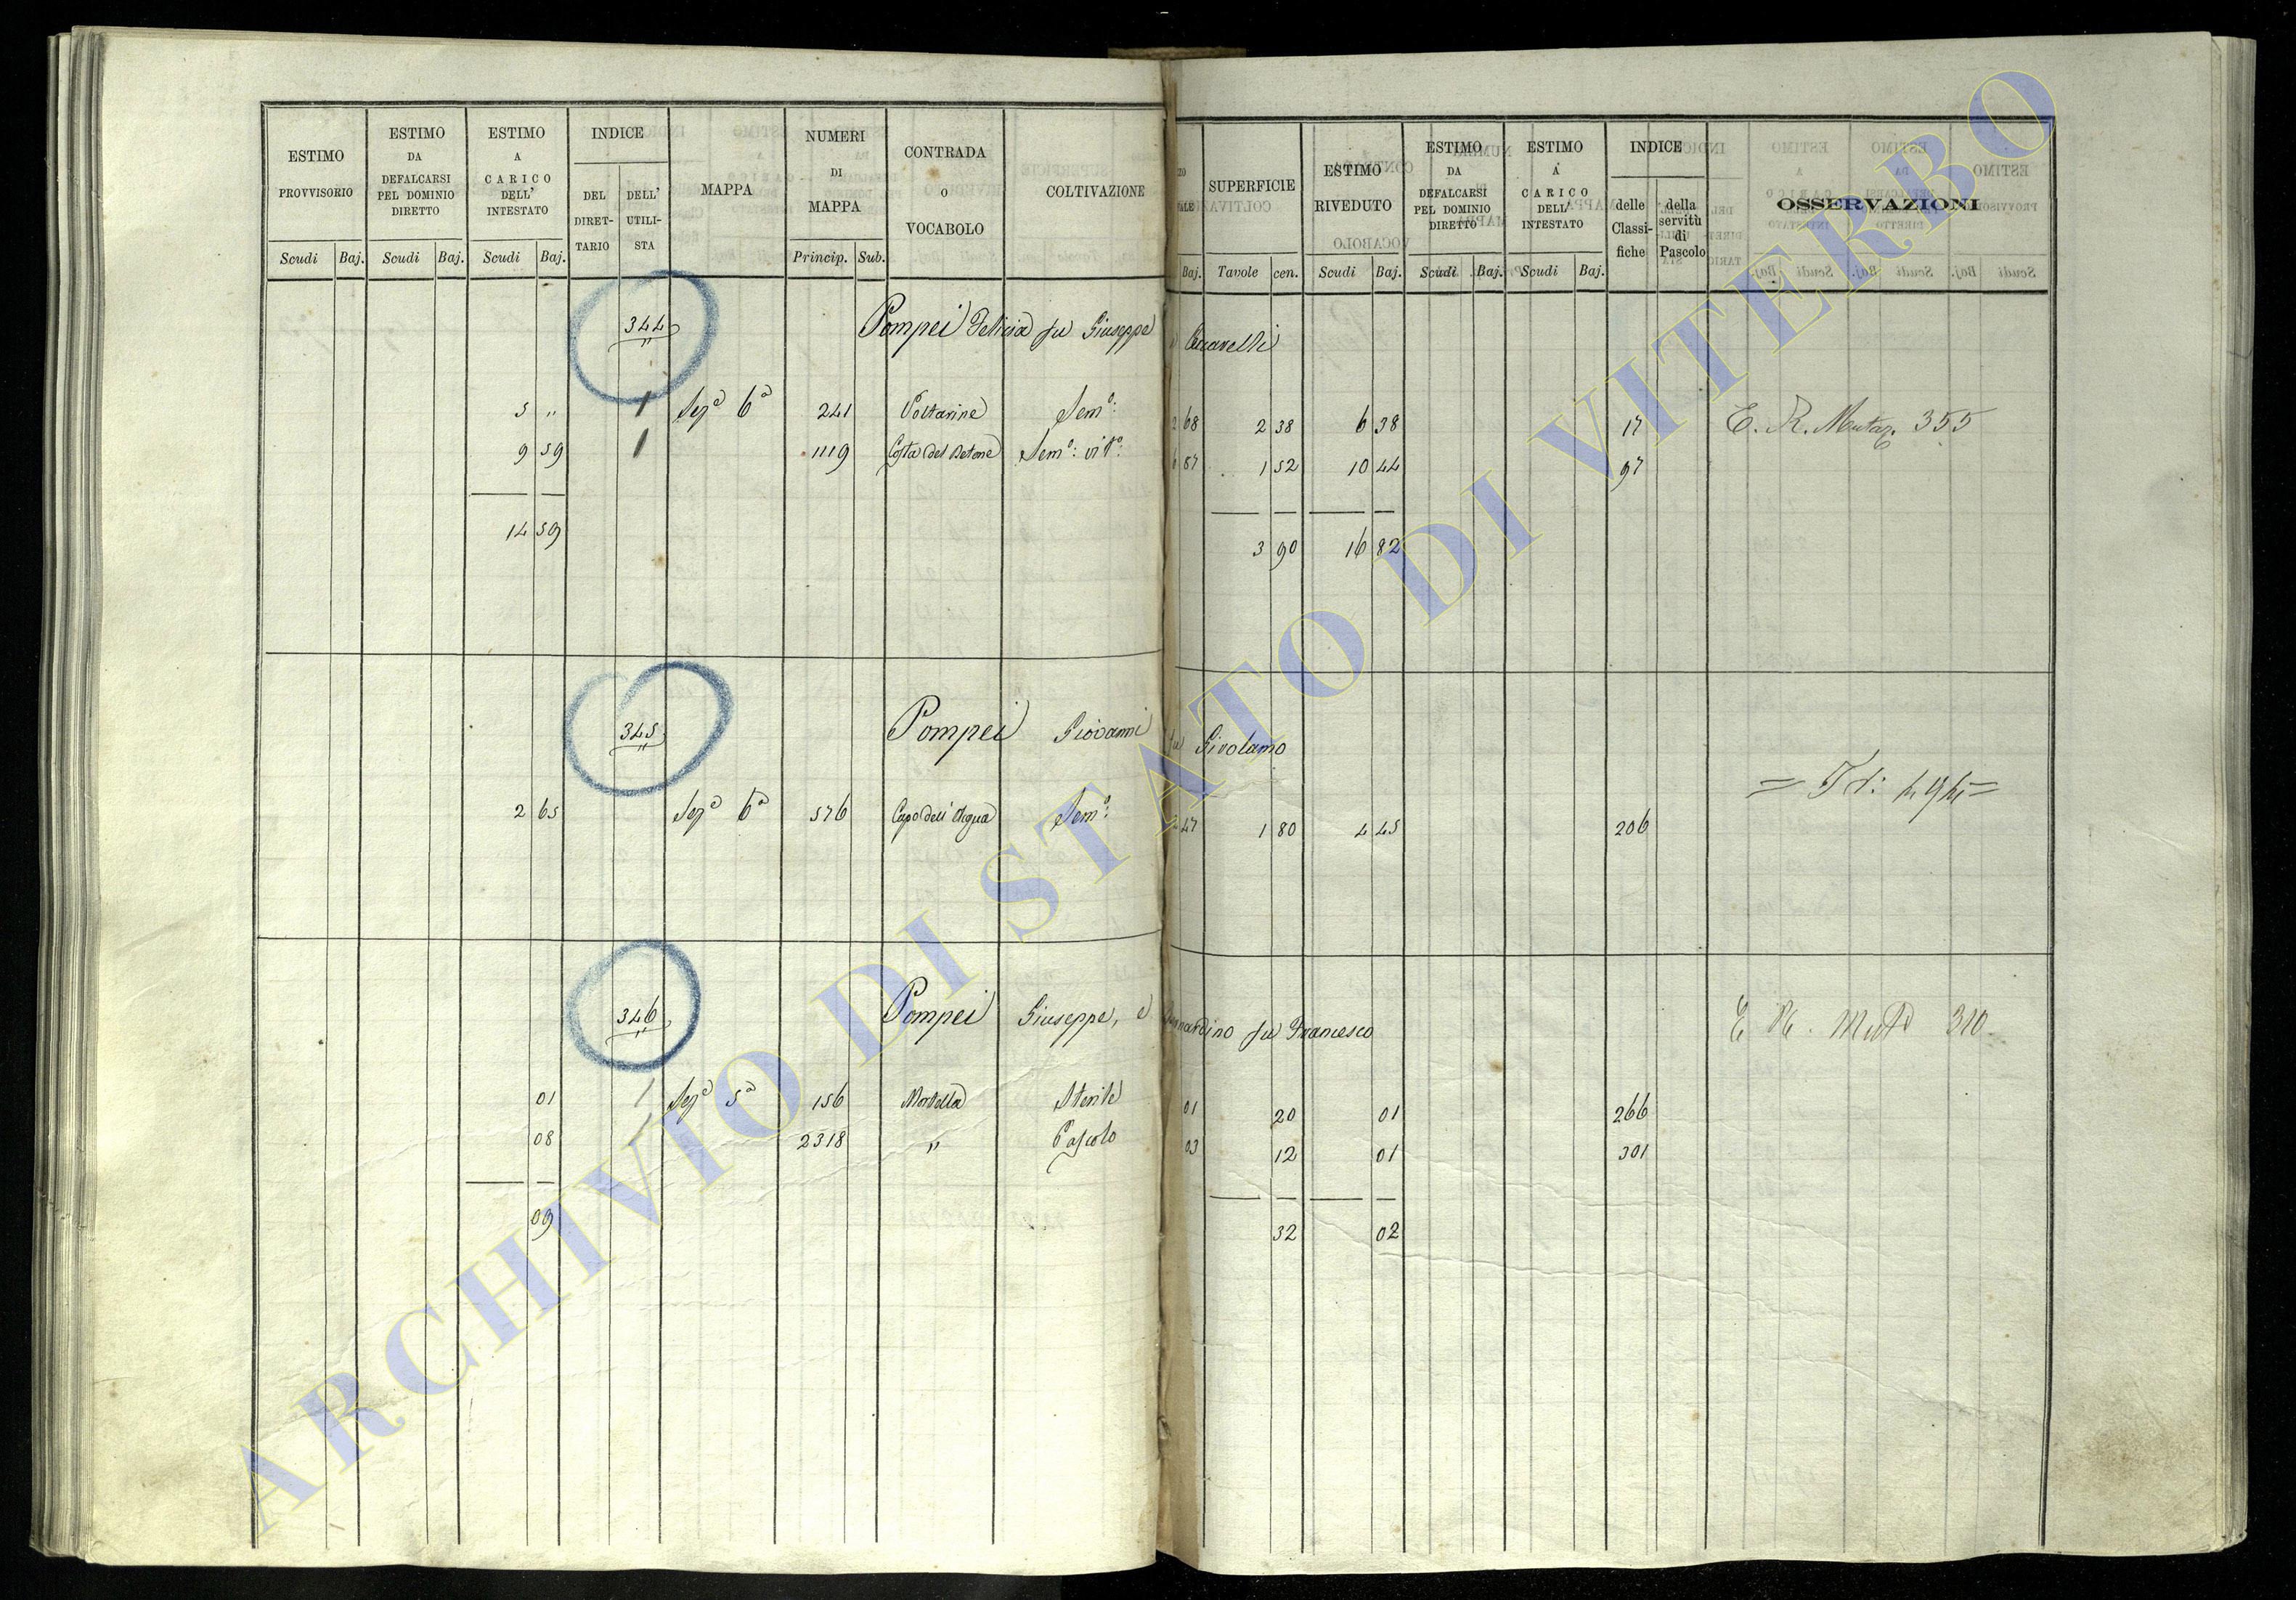 ESTIMO PROVVISORIO | ESTIMO DA DEFALCARSI PEL DOMINIO DIRETTO | ESTIMO A CARICO DELL' INTESTATO | INDICE DEL DIRET-TARIO | DELL' UTILI-STA | MAPPA | NUMERI DI MAPPA | CONTRADA O VOCABOLO | COLTIVAZIONE | SUPERFICIE | ESTIMO RIVEDUTO | ESTIMO DA DEFALCARSI PEL DOMINIO DIRETTO | ESTIMO A CARICO DELL' INTESTATO | INDICE delle Classi-fiche | della servitù di Pascolo | OSSERVAZIONI
Scudi Baj. Scudi Baj. Scudi Baj. Princip. Sub. Baj. Tavole cen. Scudi Baj. Scudi Baj. Scudi Baj.
344 Pompei Felicia fu Giuseppe
5 " 1 Sez.ª 6ª 241 Sem.º: 68 2 38 6 38 17 E. R. Mutaz. 355
9 59 1 1119 Costa del Sem.º: vit.º: 87 1 52 10 44 97
14 59 3 90 16 82
345 Pompei Giovanni fu Girolamo
= Id: 494 =
2 65 Sez.ª 6ª 576 Capo dell' Acqua Sem.º: 47 1 80 4 45 206
346 Pompei Giuseppe, e Bernardino fu Francesco E R. Mut 310
01 1 Sez.ª 5ª 156 Mortella Sterile 01 20 01 266
08 1 2318 " Pascolo 03 12 01 301
09 32 02
ARCHIVIO DI STATO DI VITERBO